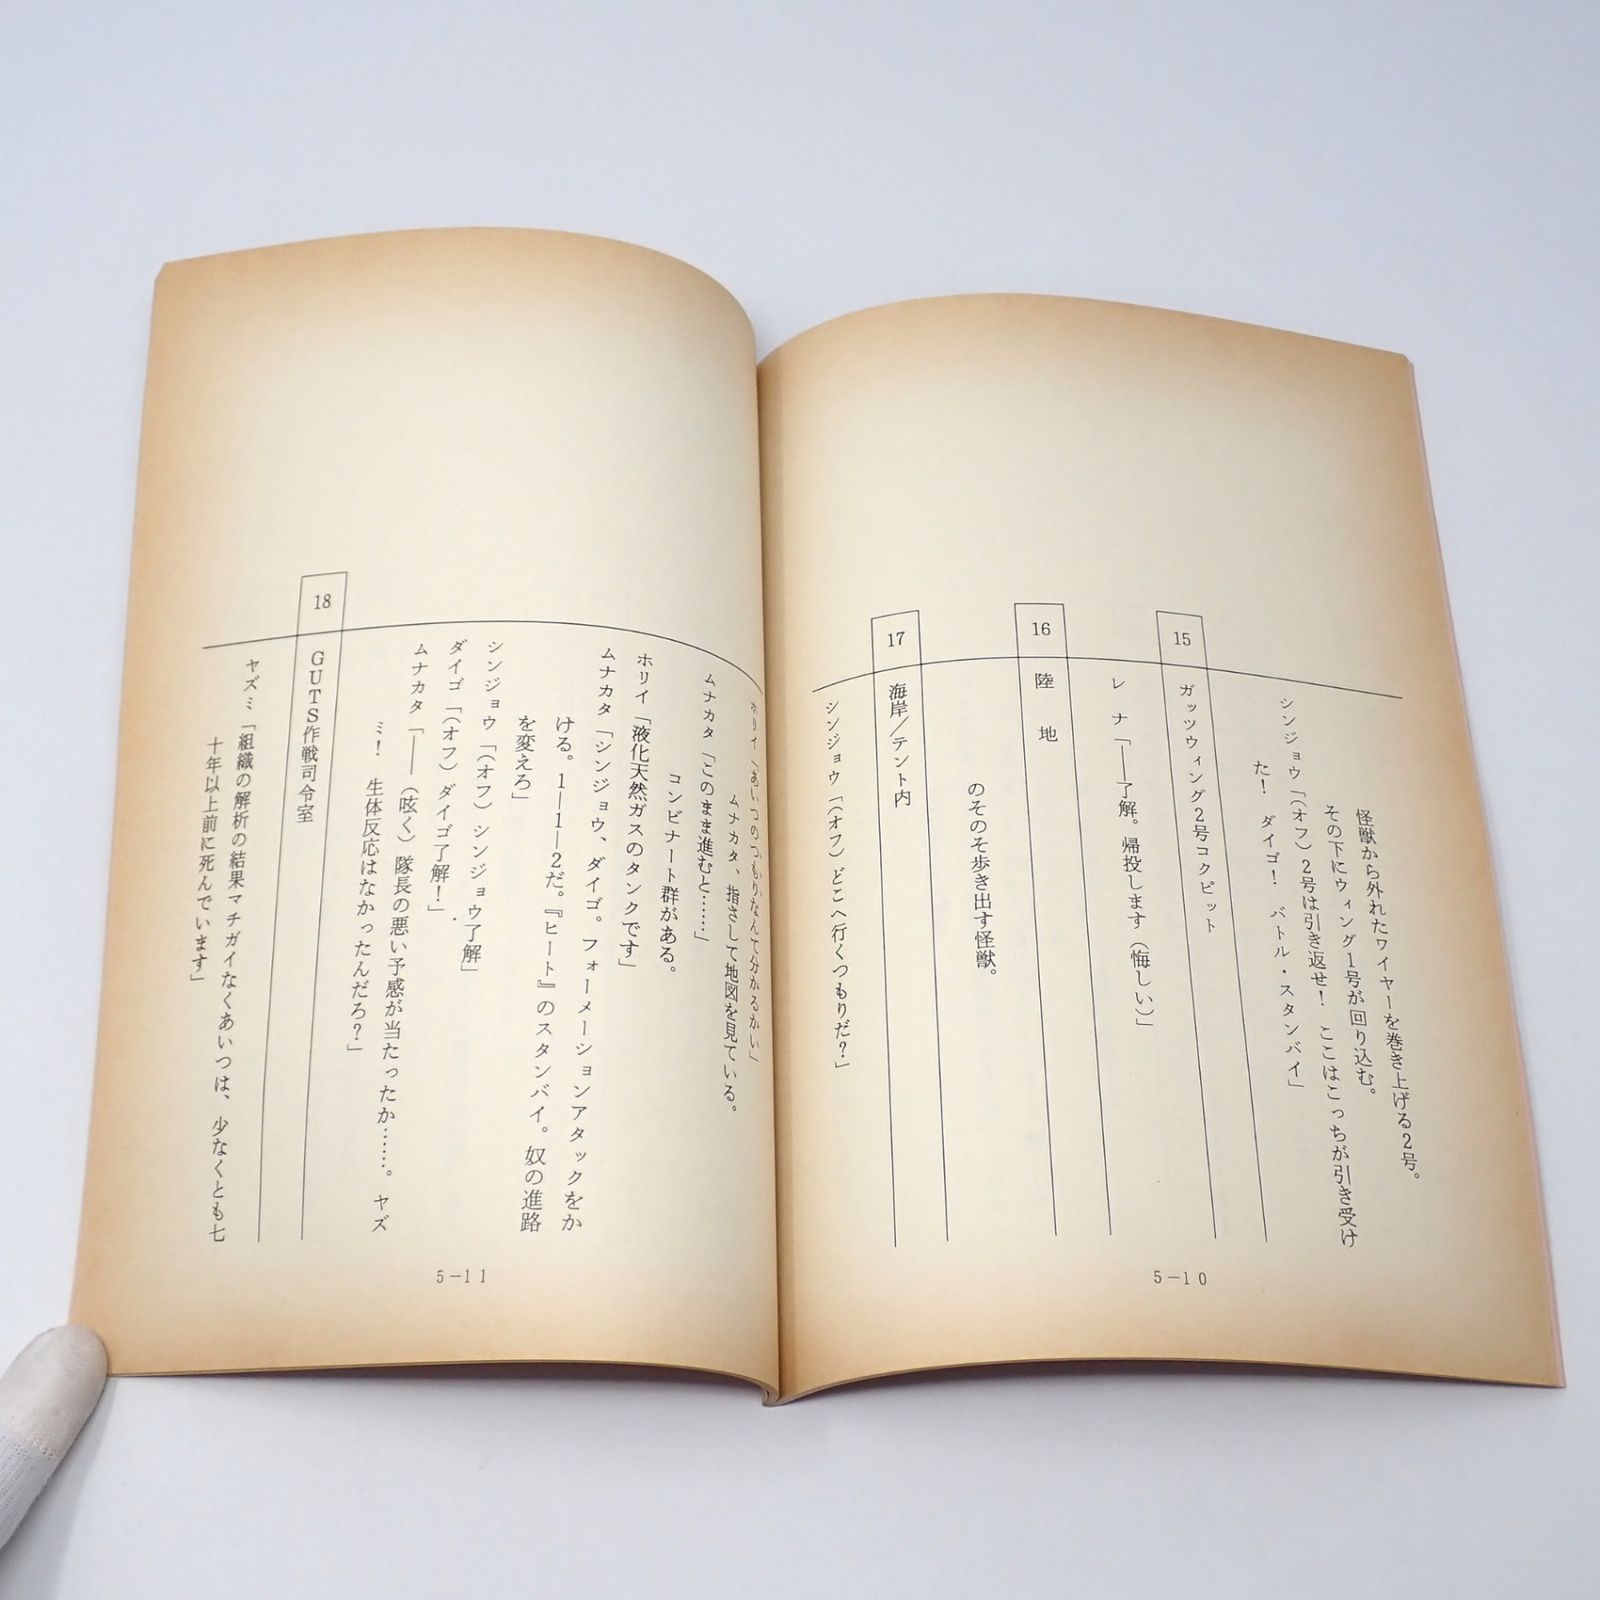 怪獣から外れたワイヤーを巻き上げる2号。
その下にウィング1号が回り込む。
シンジョウ「(オフ)2号は引き返せ！　ここはこっちが引き受け
た！　ダイゴ！　バトル・スタンバイ」
15
ガッツウィング2号コクピット
レ　ナ「――了解。帰投します(悔しい)」
16
陸　地
のそのそ歩き出す怪獣。
17
海岸／テント内
シンジョウ「(オフ)どこへ行くつもりだ？」
5－10
ホリイ「あいつのつもりなんて分かるかい」
ムナカタ、指さして地図を見ている。
ムナカタ「このまま進むと……」
コンビナート群がある。
ホリイ「液化天然ガスのタンクです」
ムナカタ「シンジョウ、ダイゴ。フォーメーションアタックをか
ける。1―1―2だ。『ヒート』のスタンバイ。奴の進路
を変えろ」
シンジョウ「(オフ)シンジョウ了解」
ダイゴ「(オフ)ダイゴ了解！」
ムナカタ「――(呟く)隊長の悪い予感が当たったか……。ヤズ
ミ！　生体反応はなかったんだろ？」
18
GUTS作戦司令室
ヤズミ「組織の解析の結果マチガイなくあいつは、少なくとも七
十年以上前に死んでいます」
5－11